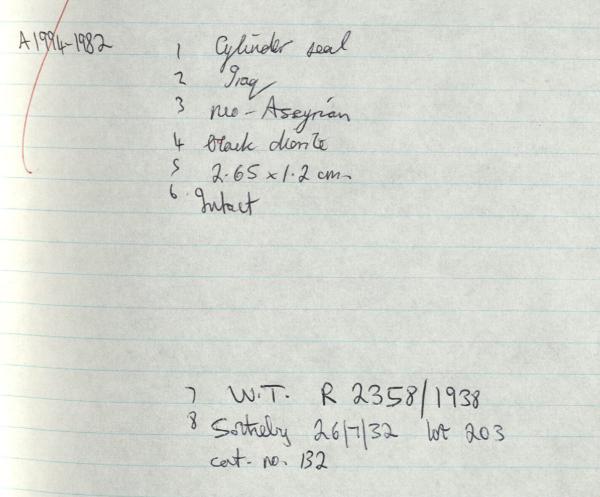 A1994-1982
1 Cylinder seal
2 Iraq
3 neo-Assyrian
4 black diorite
5 2.65 x 1.2 cm.
6. Intact
7 W.T. R 2358/1938
8 Sotheby 26/7/32 lot 203
cat. no. 132